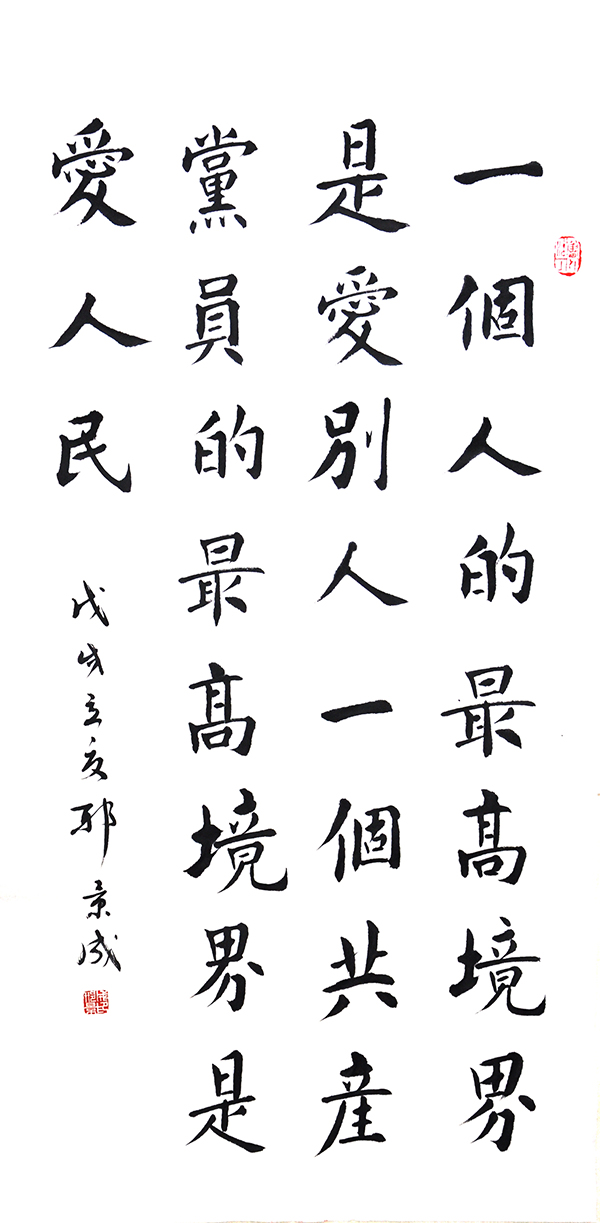 一個人的最高境界
是愛別人一個共産
黨員的最高境界是
愛人民
戊戌立夏 景成